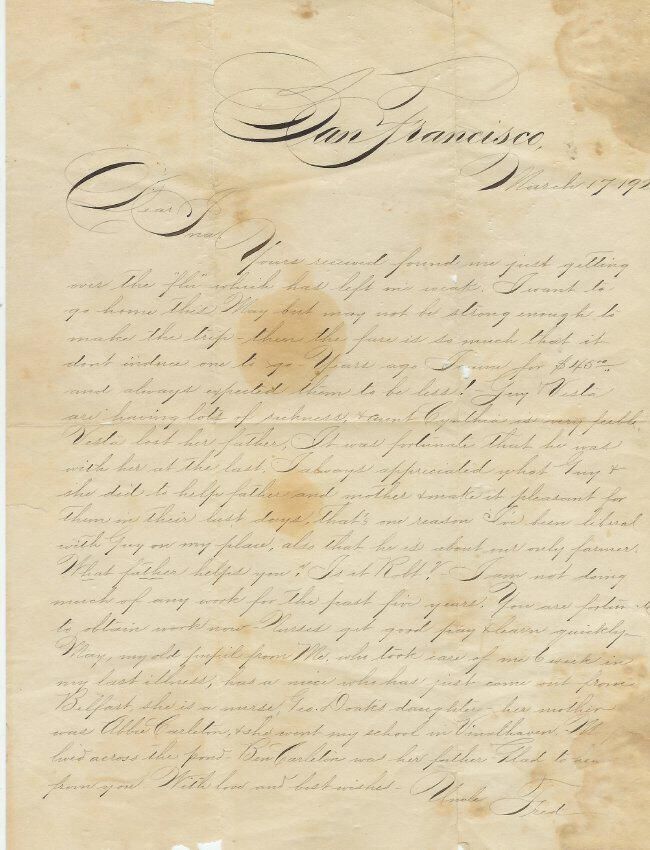 San Francisco,
March 17, 192
Dear Ina,
Yours received found me just getting
over the "flu" which has left me weak. I want to
go home this May but may not be strong enough to
make the trip - then the fare is so much that it
dont induce one to go. Years ago I came for $45.00
and always expected them to be less! Guy & Vesta
are having lots of sickness, & aunt Cynthia is very feeble
Vesta lost her father, It was fortunate that he was
with her at the last. I always appreciated what Guy &
she did to help father and mother & make it pleasant for
them in their last days, that's one reason I've been liberal
with Guy on my place, also that he is about our only farmer.
What father helps you? Is it Robt.? - I am not doing
much of any work for the past five years. You are
to obtain work now - Nurses get good pay & learn quickly -
May, my old pupil from Me, who took care of me 6 weeks in
my last illness, has a niece who has just come out from
Belfast, she is a nurse, Geo. Doak's daughter - her mother
was Abbie Carleton, & she went my school in Vinalhaven, Me
lived across the pond - Ben Carleton was her father Glad to hear
from you. With love and best wishes -
Uncle Fred